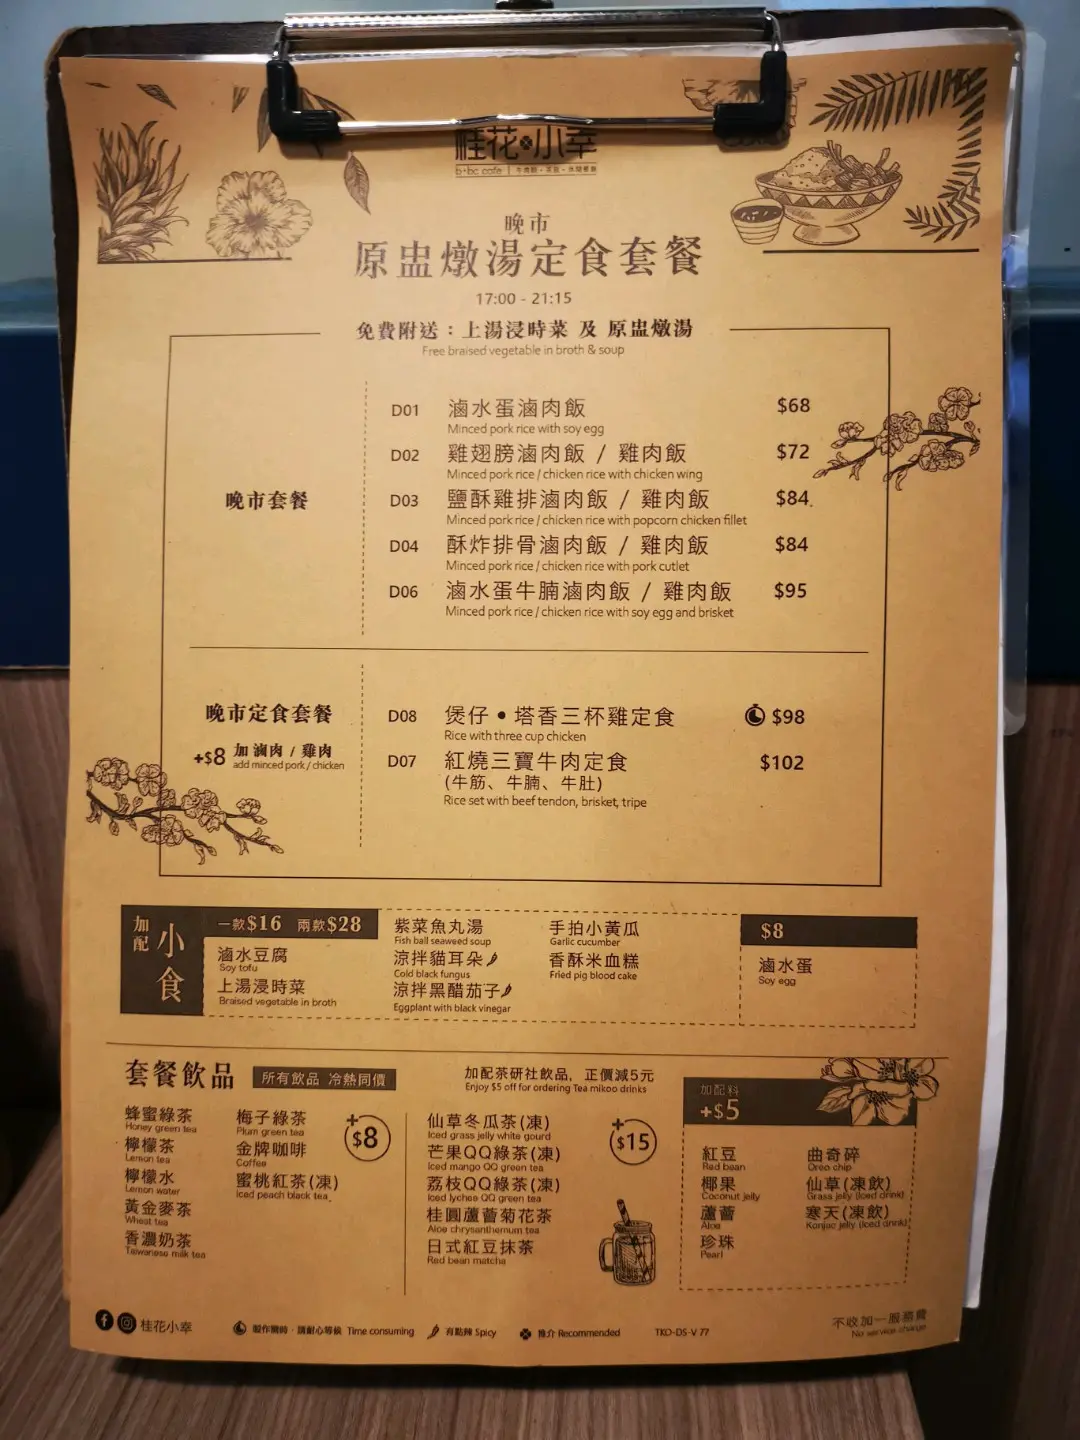 桂花小幸
b+bc cafe | 牛肉麵・茶飲・休閒餐廳
晚市
原盅燉湯定食套餐
17:00 - 21:15
免費附送：上湯浸時菜 及 原盅燉湯
Free braised vegetable in broth & soup
晚市套餐
D01 滷水蛋滷肉飯 $68
Minced pork rice with soy egg
D02 雞翅膀滷肉飯 / 雞肉飯 $72
Minced pork rice / chicken rice with chicken wing
D03 鹽酥雞排滷肉飯 / 雞肉飯 $84
Minced pork rice / chicken rice with popcorn chicken fillet
D04 酥炸排骨滷肉飯 / 雞肉飯 $84
Minced pork rice / chicken rice with pork cutlet
D06 滷水蛋牛腩滷肉飯 / 雞肉飯 $95
Minced pork rice / chicken rice with soy egg and brisket
晚市定食套餐
+$8 加 滷肉 / 雞肉
add minced pork / chicken
D08 煲仔•塔香三杯雞定食 $98
Rice with three cup chicken
D07 紅燒三寶牛肉定食 $102
(牛筋、牛腩、牛肚)
Rice set with beef tendon, brisket, tripe
加配
小食
一款$16 兩款$28
滷水豆腐
Soy tofu
上湯浸時菜
Braised vegetable in broth
紫菜魚丸湯
Fish ball seaweed soup
涼拌貓耳朵
Cold black fungus
涼拌黑醋茄子
Eggplant with black vinegar
手拍小黃瓜
Garlic cucumber
香酥米血糕
Fried pig blood cake
$8
滷水蛋
Soy egg
套餐飲品
所有飲品 冷熱同價
加配茶研社飲品，正價減5元
Enjoy $5 off for ordering Tea mikoo drinks
蜂蜜綠茶
Honey green tea
檸檬茶
Lemon tea
檸檬水
Lemon water
黃金麥茶
Wheat tea
香濃奶茶
Taiwanese milk tea
梅子綠茶
Plum green tea
金牌咖啡
Coffee
蜜桃紅茶(凍)
Iced peach black tea
+$8
仙草冬瓜茶(凍)
Iced grass jelly white gourd
芒果QQ綠茶(凍)
Iced mango QQ green tea
荔枝QQ綠茶(凍)
Iced lychee QQ green tea
桂圓蘆薈菊花茶
Aloe chrysanthemum tea
日式紅豆抹茶
Red bean matcha
+$15
加配料
+$5
紅豆
Red bean
椰果
Coconut jelly
蘆薈
Aloe
珍珠
Pearl
曲奇碎
Oreo chip
仙草(凍飲)
Grass jelly (Iced drink)
寒天(凍飲)
Konjac jelly (Iced drink)
桂花小幸
製作需時，請耐心等候 Time consuming
有點辣 Spicy
推介 Recommended
TKO-DS-V 77
不收加一服務費
No service charge